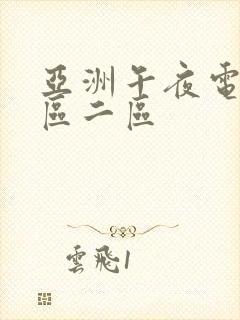 亞洲午夜電
區二區
雲飛1